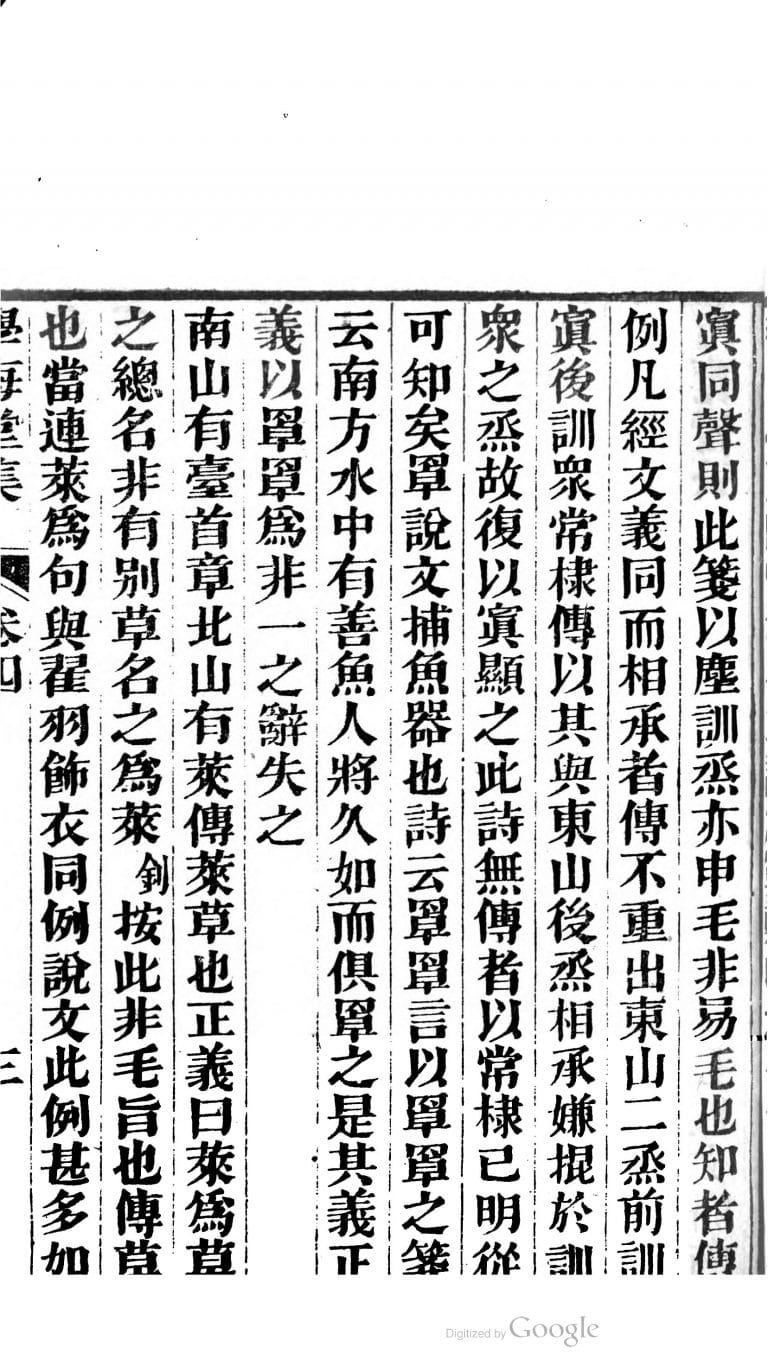 寘同聲則此箋以塵訓烝亦申毛非易毛也知者傳
例凡經文義同而相承者傳不重出東山二烝前訓
寘後訓衆常棣傳以其與東山後烝相承嫌掍於訓
衆之烝故復以寘顯之此詩無傳者以常棣已明從
可知矣罩說文捕魚器也詩云罩罩言以罩罩之箋
云南方水中有善魚人將久如而俱罩之是其義正
義以罩罩爲非一之辭失之
南山有臺首章北山有萊傳萊草也正義曰萊爲草
之總名非有别草名之爲萊釗按此非毛旨也傳草
也當連萊爲句與翟羽飾衣同例說文此例甚多如
學海堂集 卷四 三
Digitized by Google